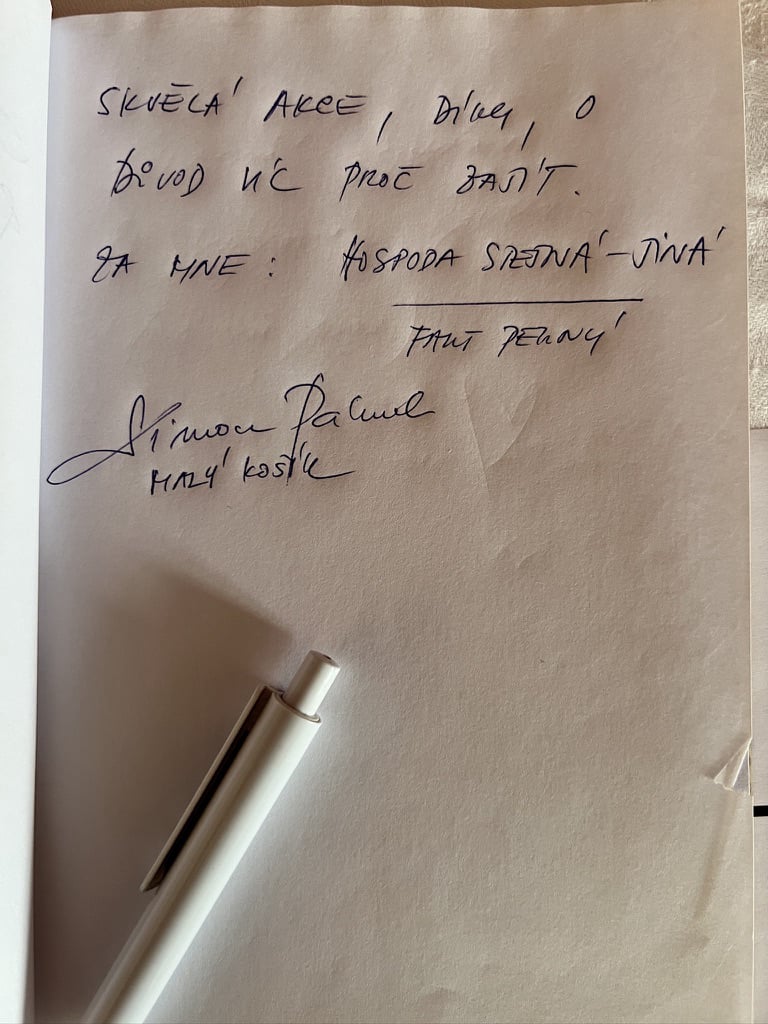 SKVĚLÁ AKCE, DÍKY, O
DŮVOD VÍC PROČ ZAJÍT.
ZA MNE: HOSPODA STEJNÁ – JINÁ
FAKT PĚKNÝ
Šimon
MALÝ KOŠÍK